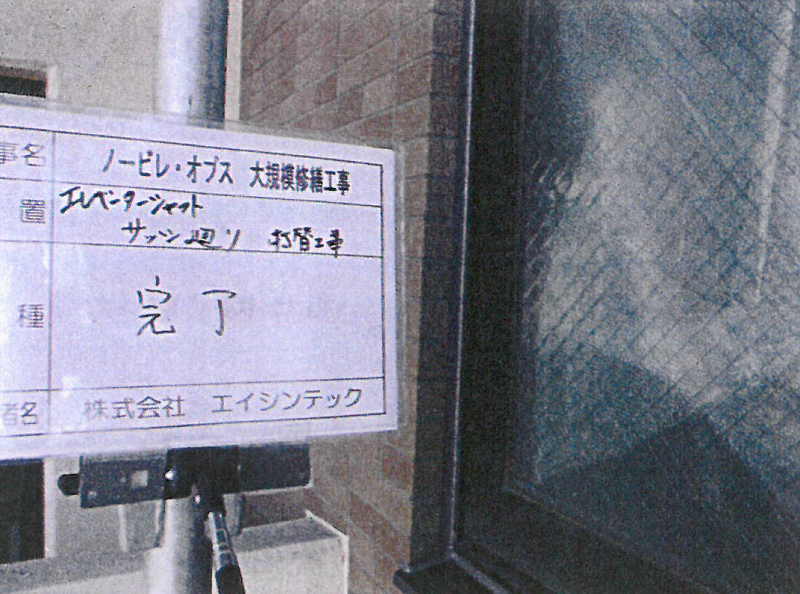 事名 ノービレ・オプス 大規模修繕工事
置 エレベーターシャフト
サッシ廻り 打替工事
種 完了
者名 株式会社 エイシンテック